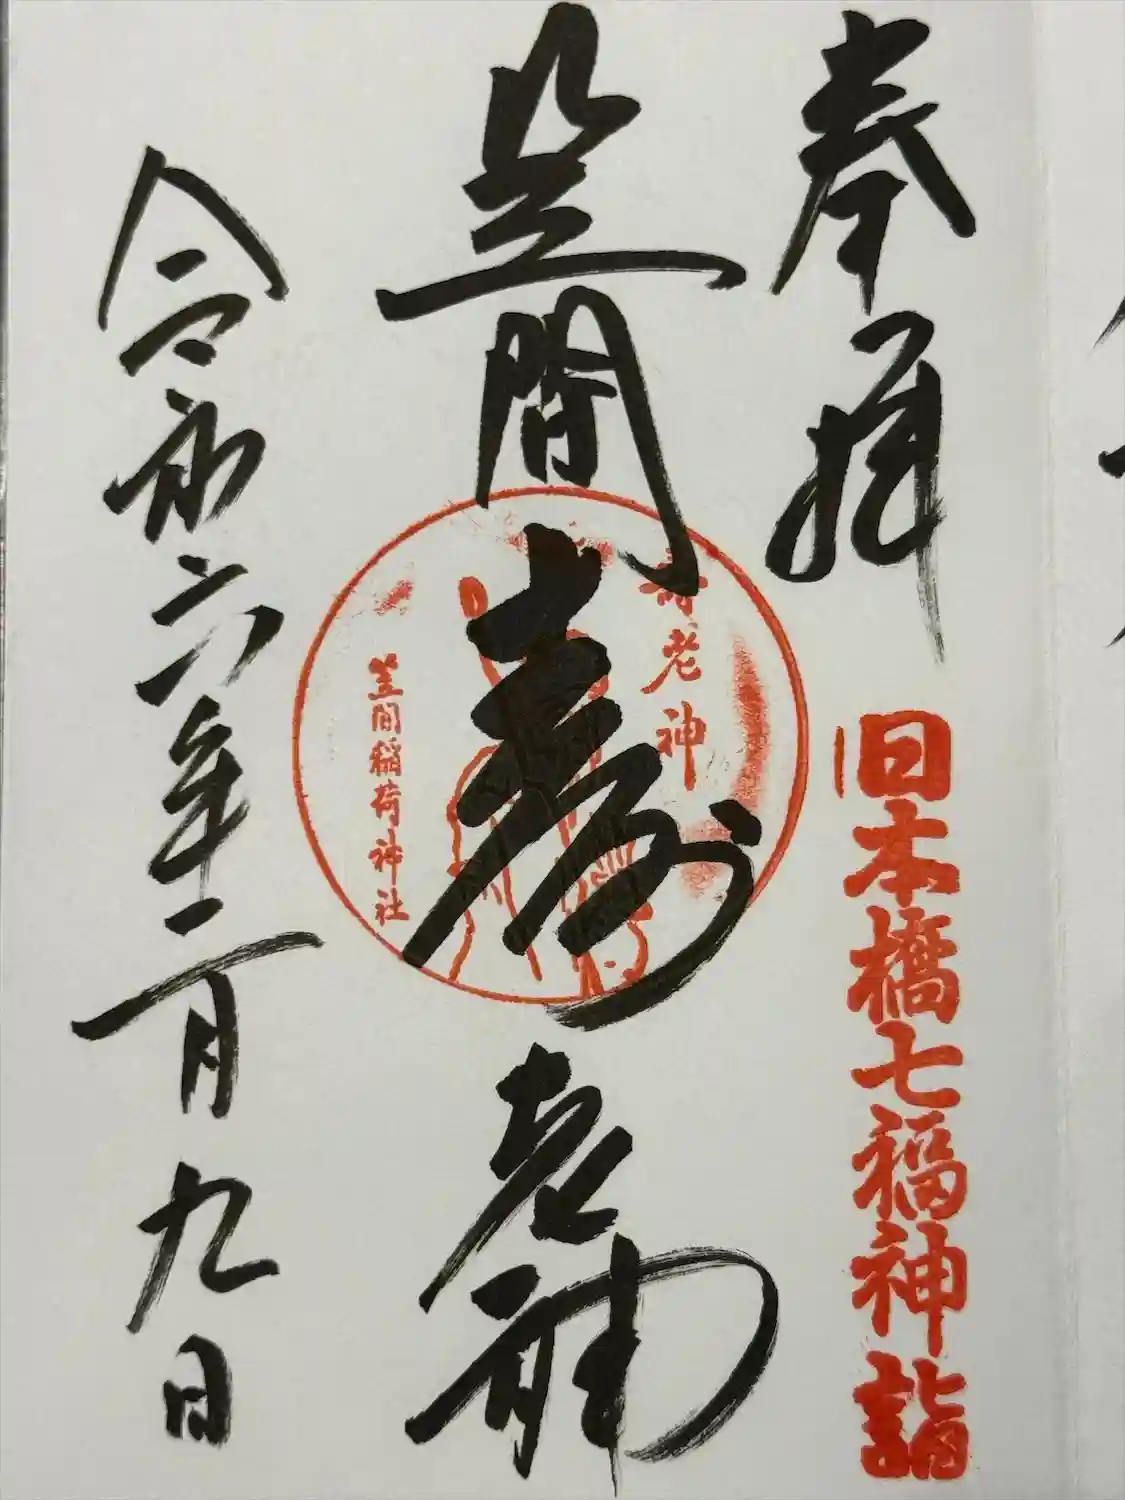 奉拝
日本橋七福神詣
笠間
寿老神
寿老神
笠間稲荷神社
令和六年一月九日